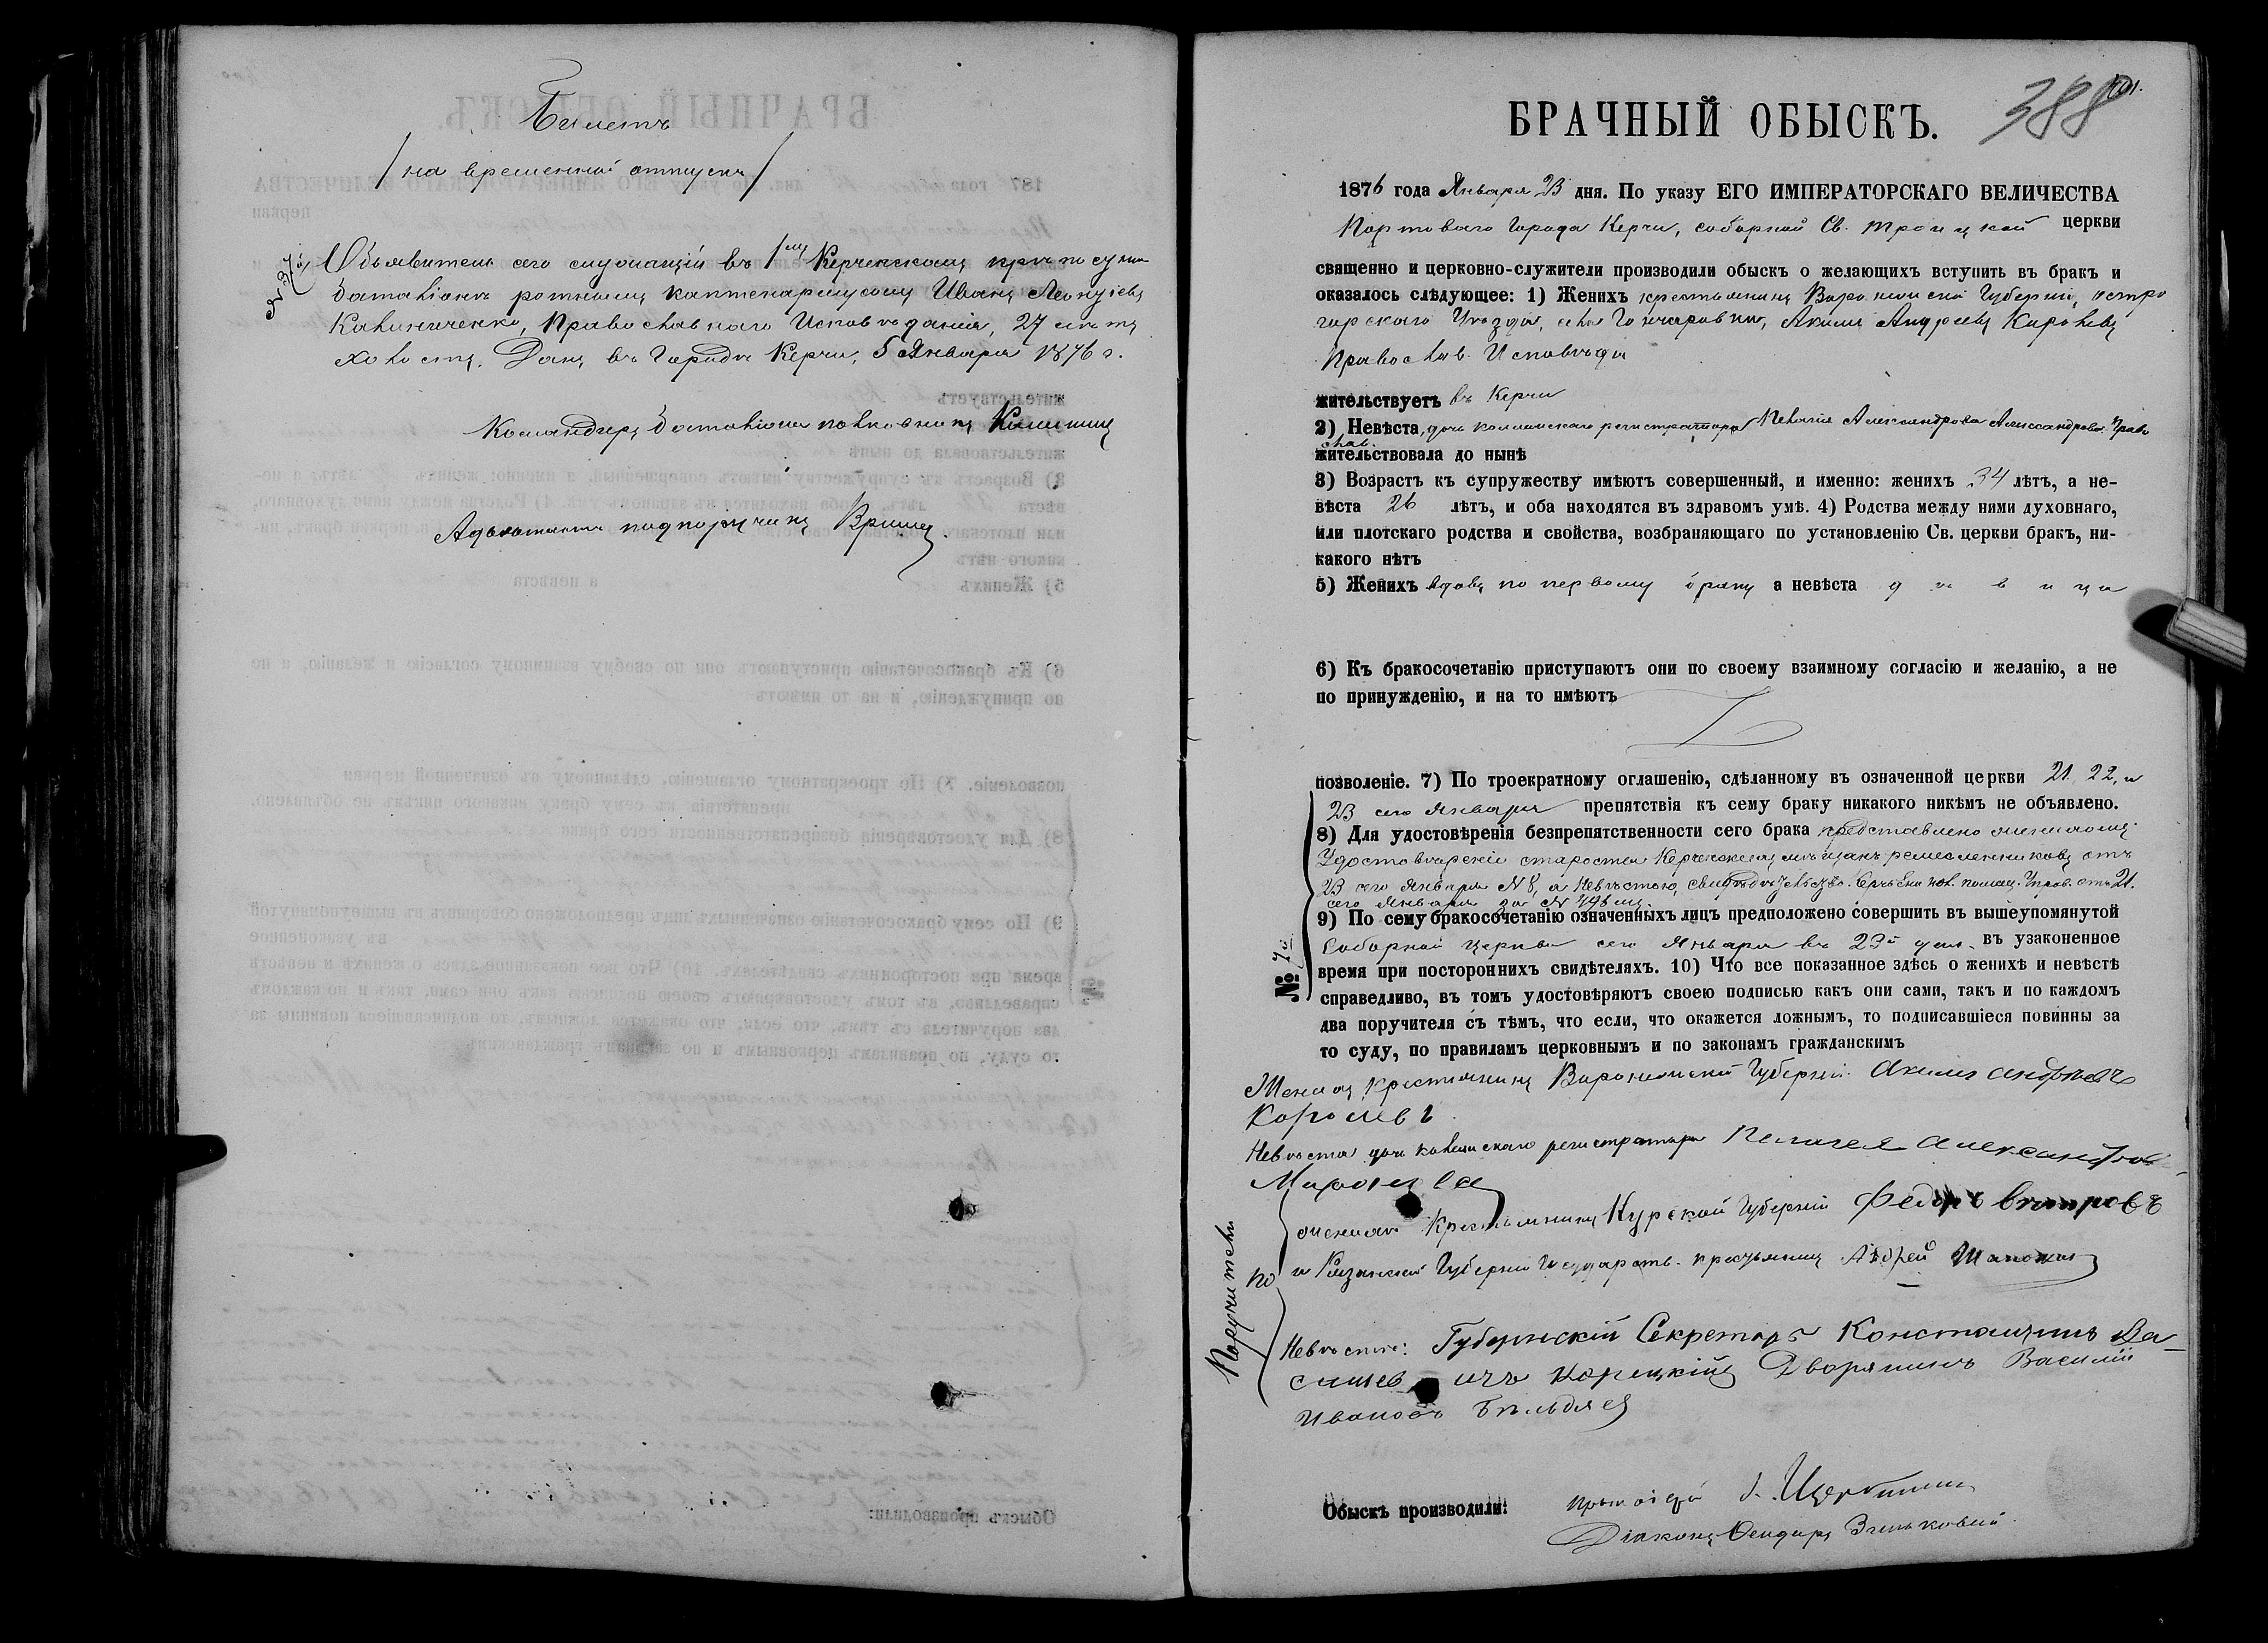 Билетъ
/ на временной отпускъ /
№ 37й
Объявитель сего служащій въ 1мъ Керченскомъ крѣпостномъ
баталіонѣ ротнымъ каптенармусомъ Иванъ Леонтіевъ
Калиниченко, Православнаго Исповѣданія, 27 лѣтъ
холостъ. Данъ въ Городѣ Керчи, 5 Января 1876 г.
Командиръ баталіона полковникъ
Адъютантъ подпоручикъ
388
БРАЧНЫЙ ОБЫСКЪ.
1876 года Января 23 дня. По указу ЕГО ИМПЕРАТОРСКАГО ВЕЛИЧЕСТВА
Портоваго Города Керчи, соборной Св. Троицкой церкви
священно и церковно-служители производили обыскъ о желающихъ вступить въ бракъ и
оказалось слѣдующее: 1) Женихъ крестьянинъ Воронежской Губерніи, Остро
горскаго Уѣзда, села Гончаровки, Акимъ Андреевъ Королевъ
Православ. Исповѣда
жительствуетъ въ Керчи
2) Невѣста, дочь коллежскаго регистратора Пелагія Александрова Александрова Право
слав.
жительствовала до нынѣ
3) Возрастъ къ супружеству имѣютъ совершенный, и именно: женихъ 34 лѣтъ, а не-
вѣста 26 лѣтъ, и оба находятся въ здравомъ умѣ. 4) Родства между ними духовнаго,
или плотскаго родства и свойства, возбраняющаго по установленію Св. церкви бракъ, ни-
какого нѣтъ
5) Женихъ вдовъ по первому браку а невѣста дѣвица
6) Къ бракосочетанію приступаютъ они по своему взаимному согласію и желанію, а не
по принужденію, и на то имѣютъ
позволеніе. 7) По троекратному оглашенію, сдѣланному въ означенной церкви 21, 22, и
23 сего Января препятствія къ сему браку никакого никѣмъ не объявлено.
8) Для удостовѣренія безпрепятственности сего брака представлено женихомъ
Удостовѣреніе старосты Керченскихъ мѣщанъ ремесленниковъ отъ
23 сего Января № 8, а Невѣстою, свидѣтельство Керчь Ени пол. помощ. Управ. отъ 21.
сего Января за №
9) По сему бракосочетанію означенныхъ лицъ предположено совершить въ вышеупомянутой
Соборной церкви сего Января въ 23й день въ узаконенное
№ 7й
время при постороннихъ свидѣтеляхъ. 10) Что все показанное здѣсь о женихѣ и невѣстѣ
справедливо, въ томъ удостовѣряютъ своею подписью какъ они сами, такъ и по каждомъ
два поручителя съ тѣмъ, что если, что окажется ложнымъ, то подписавшіеся повинны за
то суду, по правиламъ церковнымъ и по законамъ гражданскимъ
Женихъ крестьянинъ Воронежской Губерніи Акимъ Андреевъ
Королевъ
Невѣста дочь коллежскаго регистратора Пелагея Александрова
Поручители
по
женихѣ Крестьянинъ Курской Губерніи Федоръ
и Рязанской Губерніи Государств. крестьянинъ Андрей
Невѣстѣ: Губернскій Секретарь Константинъ Ва-
сильевичъ Корецкій Дворянинъ Василій
Ивановъ
Обыскъ производили:
Протоіерей
Діаконъ Зеньковскій